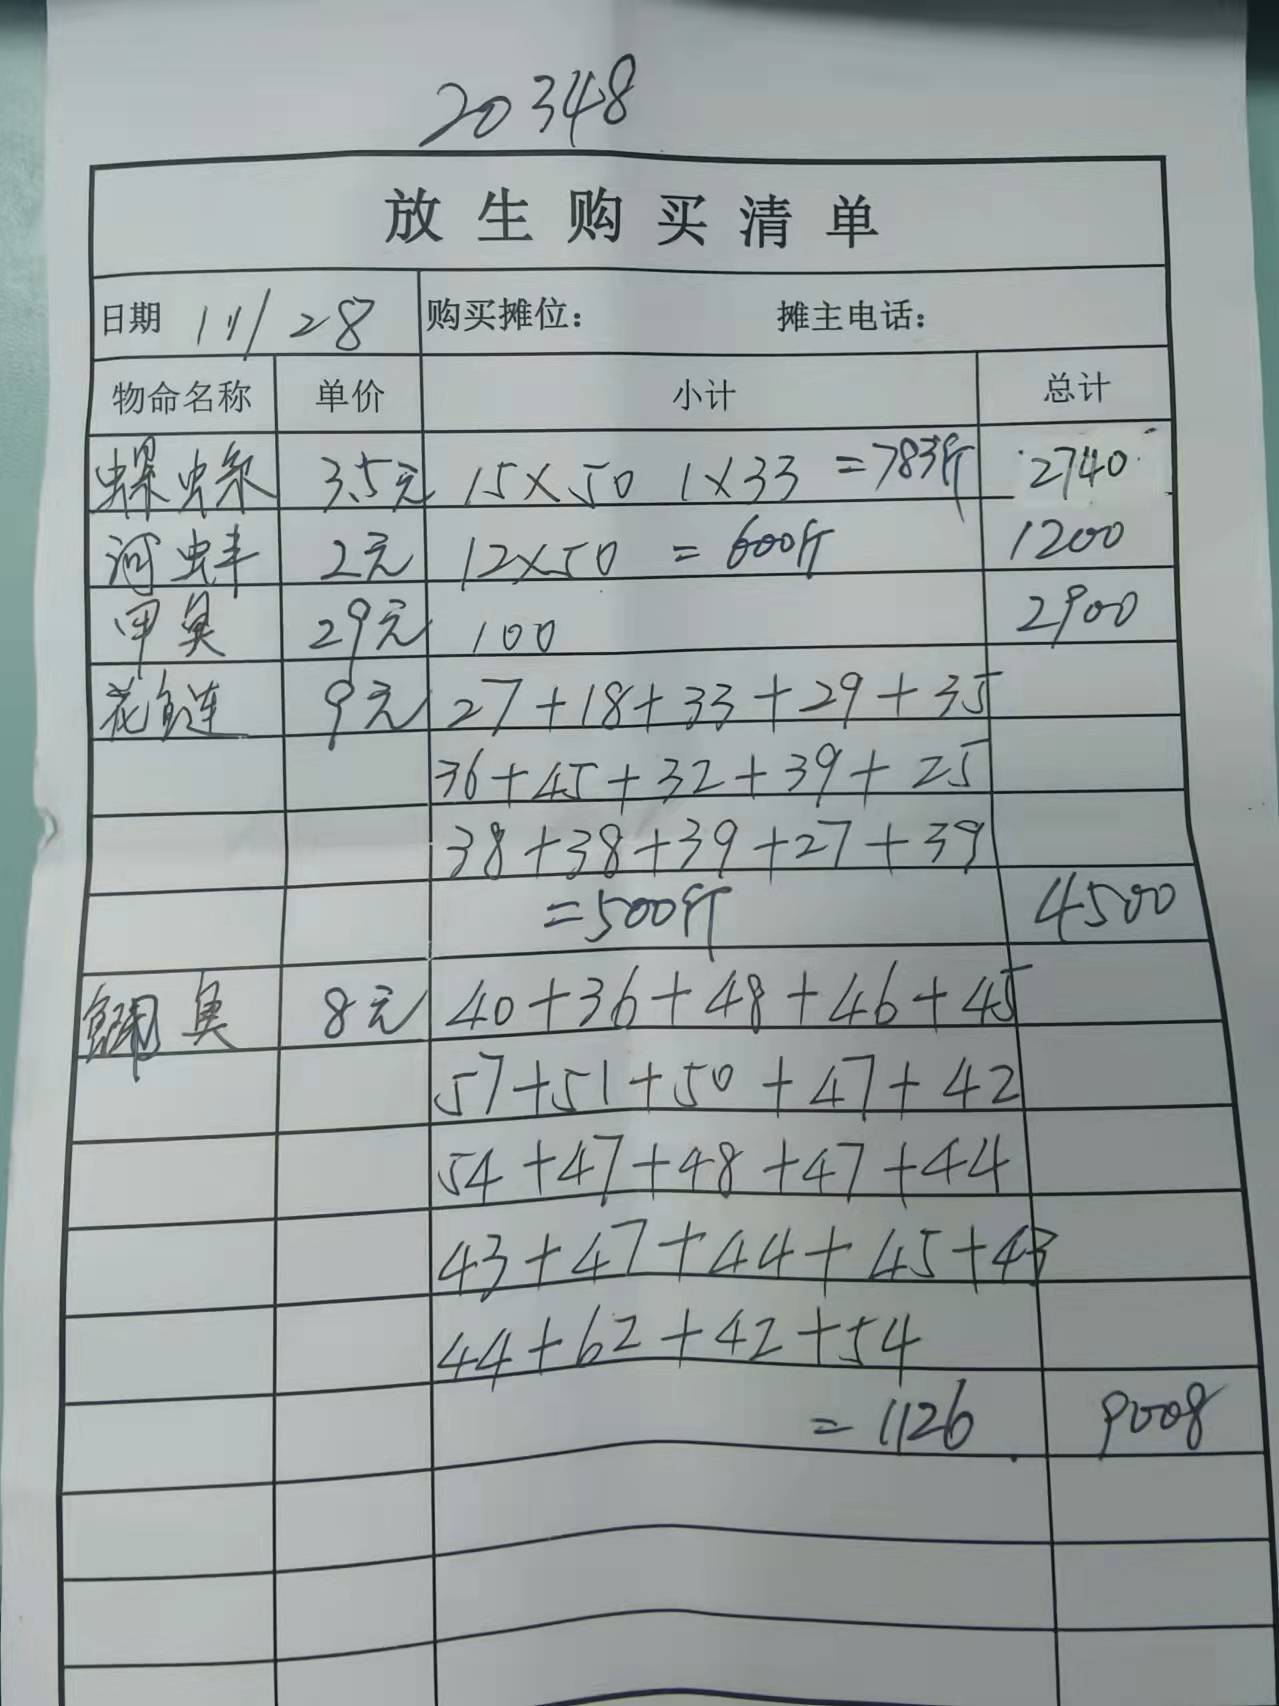 20348
放生购买清单
日期 11/28 购买摊位： 摊主电话：
物命名称 单价 小计 总计
螺蛳 3.5元 15×50 1×33 =783斤 2740
河蚌 2元 12×50 =600斤 1200
甲鱼 29元 100 2900
花鲢 9元 27+18+33+29+35
36+45+32+39+25
38+38+39+27+39
=500斤 4500
鱼 8元 40+36+48+46+45
57+51+50+47+42
54+47+48+47+44
43+47+44+45+43
44+62+42+54
=1126 9008